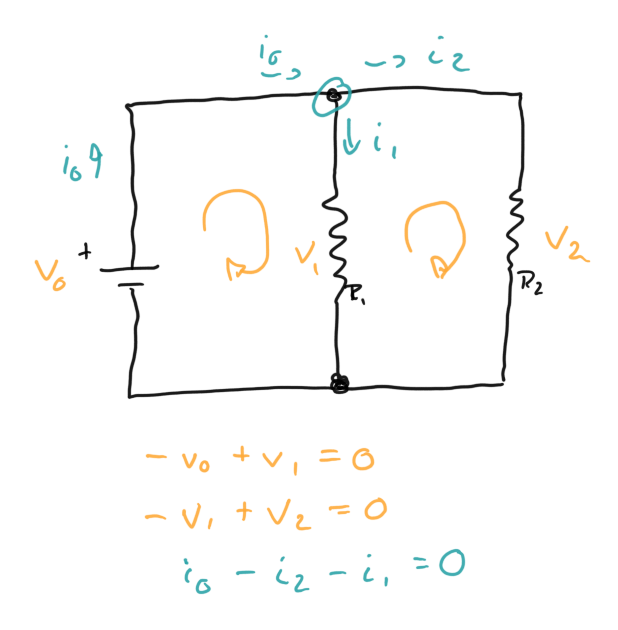 i₀ → → i₂
i₀ ↑ ↓ i₁
+
V₀ V₁ V₂
R₁ R₂
- v₀ + v₁ = 0
- v₁ + v₂ = 0
i₀ - i₂ - i₁ = 0